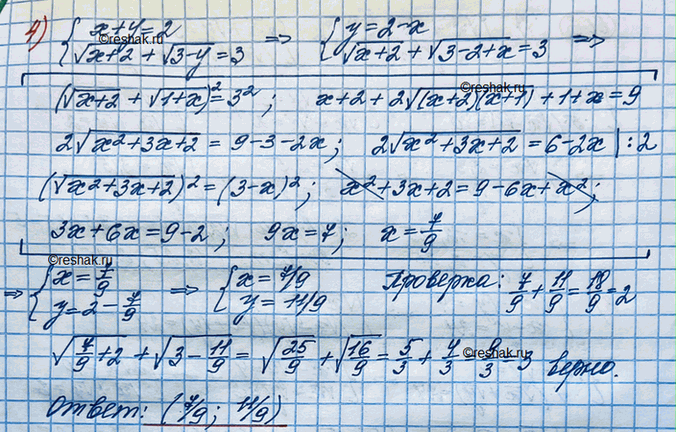 4) { x+y=2 ; √(x+2) + √(3-y) = 3 => { y=2-x ; √(x+2) + √(3-2+x) = 3 =>
©reshak.ru
(√(x+2) + √(1+x))² = 3² ; x+2+2√((x+2)(x+1)) + 1+x = 9
©reshak.ru
2√(x²+3x+2) = 9-3-2x ; 2√(x²+3x+2) = 6-2x |:2
(√(x²+3x+2))² = (3-x)² ; x²+3x+2 = 9-6x+x² ;
3x+6x=9-2 ; 9x=7 ; x=7/9
©reshak.ru
=> { x=7/9 ; y=2-7/9 => { x=7/9 ; y=11/9 Проверка: 7/9+11/9=18/9=2
√(7/9+2) + √(3-11/9) = √(25/9) + √(16/9) = 5/3+4/3=9/3=3 верно.
Ответ: (7/9; 11/9)